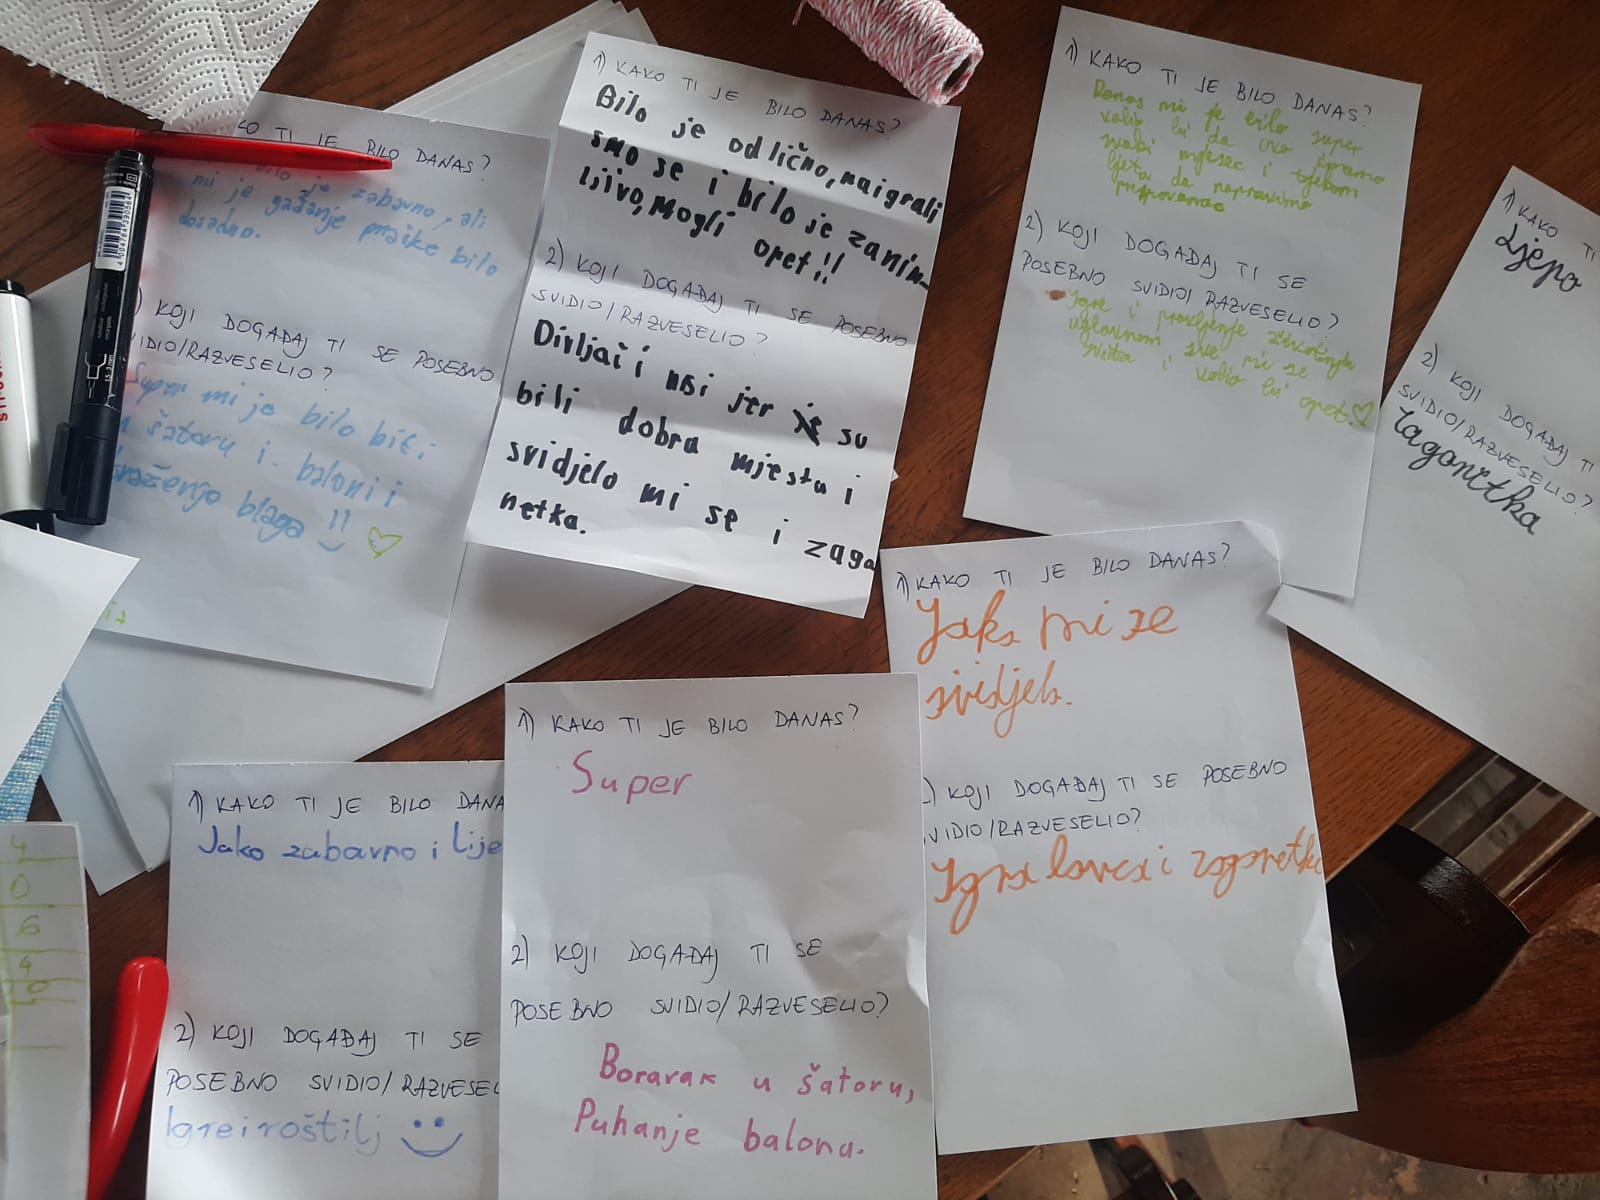 TI JE BILO DANAS?
bilo je zabavno, ali
mi je gađanje praćke bilo
dosadno.
KOJI DOGAĐAJ TI SE POSEBNO
SVIDIO/RAZVESELIO?
Super mi je bilo biti
u šatoru i baloni i
traženje blaga !!
1) KAKO TI JE BILO DANAS?
Bilo je odlično, naigrali
smo se i bilo je zanim-
ljivo, mogli opet!!
2) KOJI DOGAĐAJ TI SE POSEBNO
SVIDIO/RAZVESELIO?
Divljač i
jer su
bili dobra mjesta i
svidjelo mi se i zago
netka.
1) KAKO TI JE BILO DANAS?
Danas mi je bilo super
voljo bi' da ovo
svaki mjesec i tjekom
ljeta da napravimo
2) KOJI DOGAĐAJ TI SE
POSEBNO SVIDIO/RAZVESELIO?
Igre i
uglavnom sve mi se
i voljo bi' opet.
1) KAKO TI
Ljepo
2) KOJI DOGAĐAJ TI
SVIDIO/RAZVESELIO?
Zagonetka
1) KAKO TI JE BILO DANAS?
Jako mi se
svidjelo.
KOJI DOGAĐAJ TI SE POSEBNO
SVIDIO/RAZVESELIO?
Igra lovca i zagonetke
1) KAKO TI JE BILO DANA
Jako zabavno i lije
2) KOJI DOGAĐAJ TI SE
POSEBNO SVIDIO/RAZVESEL
Igre i roštilj
1) KAKO TI JE BILO DANAS?
Super
2) KOJI DOGAĐAJ TI SE
POSEBNO SVIDIO/RAZVESELIO?
Boravak u šatoru,
Puhanje balona.